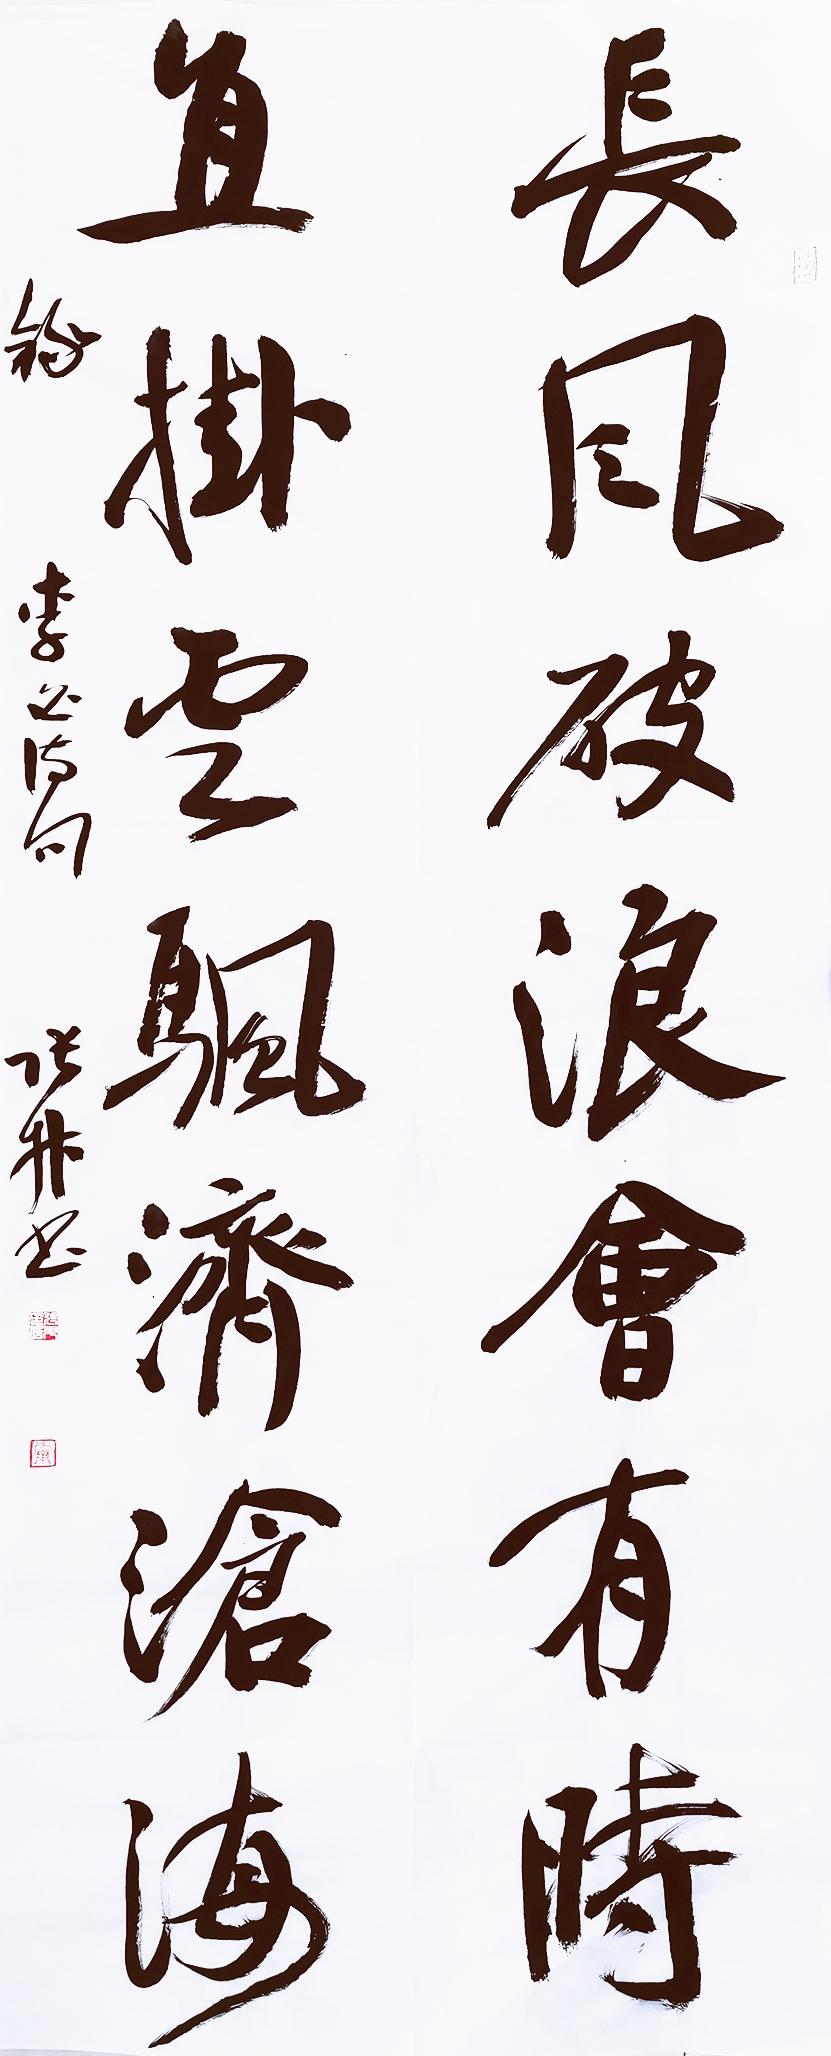 長風破浪會有時
直掛雲颿濟滄海
李白詩句
張 書